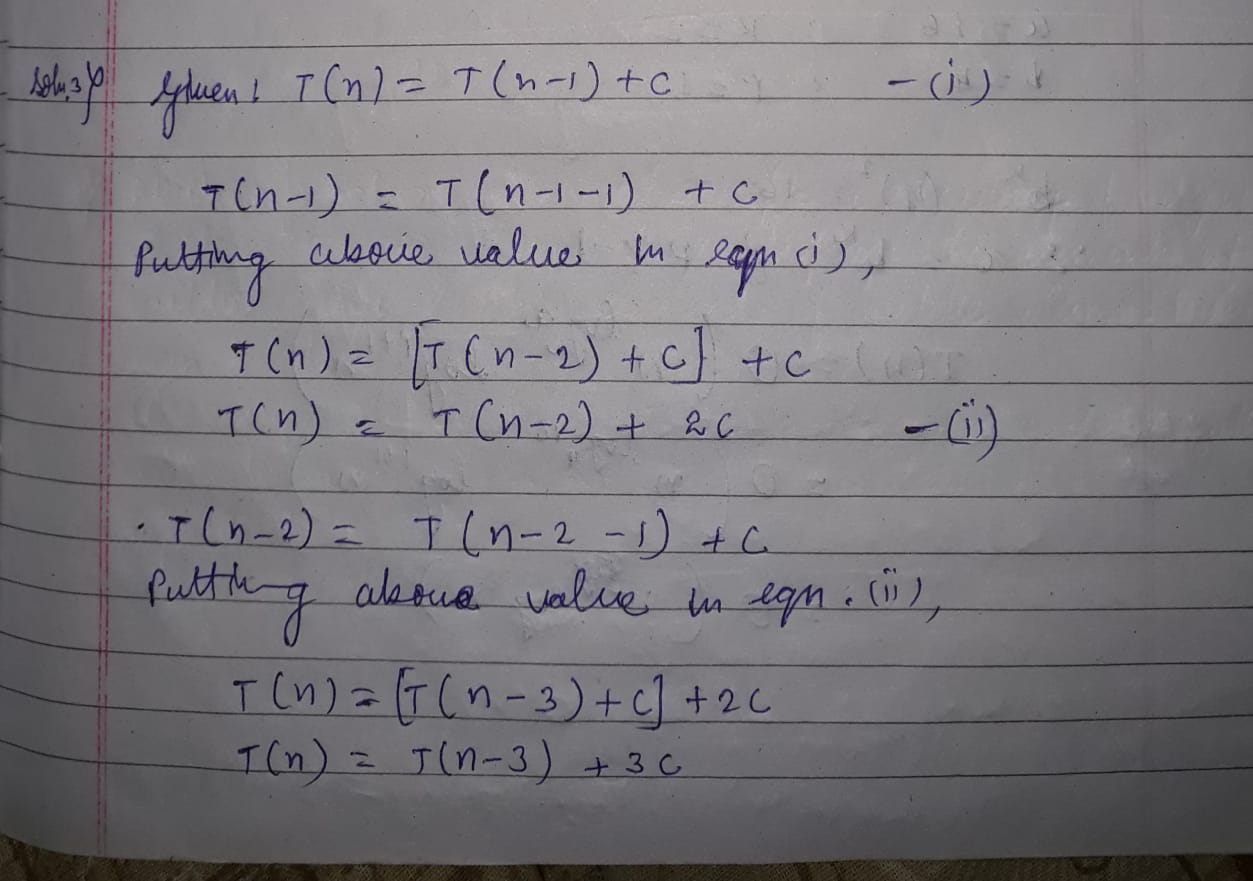 Soln.3) Given: T(n) = T(n-1) + C -(i)
T(n-1) = T(n-1-1) + C
Putting above value in eqn (i),
T(n) = [T(n-2) + C] + C
T(n) = T(n-2) + 2C -(ii)
. T(n-2) = T(n-2-1) + C
Putting above value in eqn. (ii),
T(n) = [T(n-3) + C] + 2C
T(n) = T(n-3) + 3C